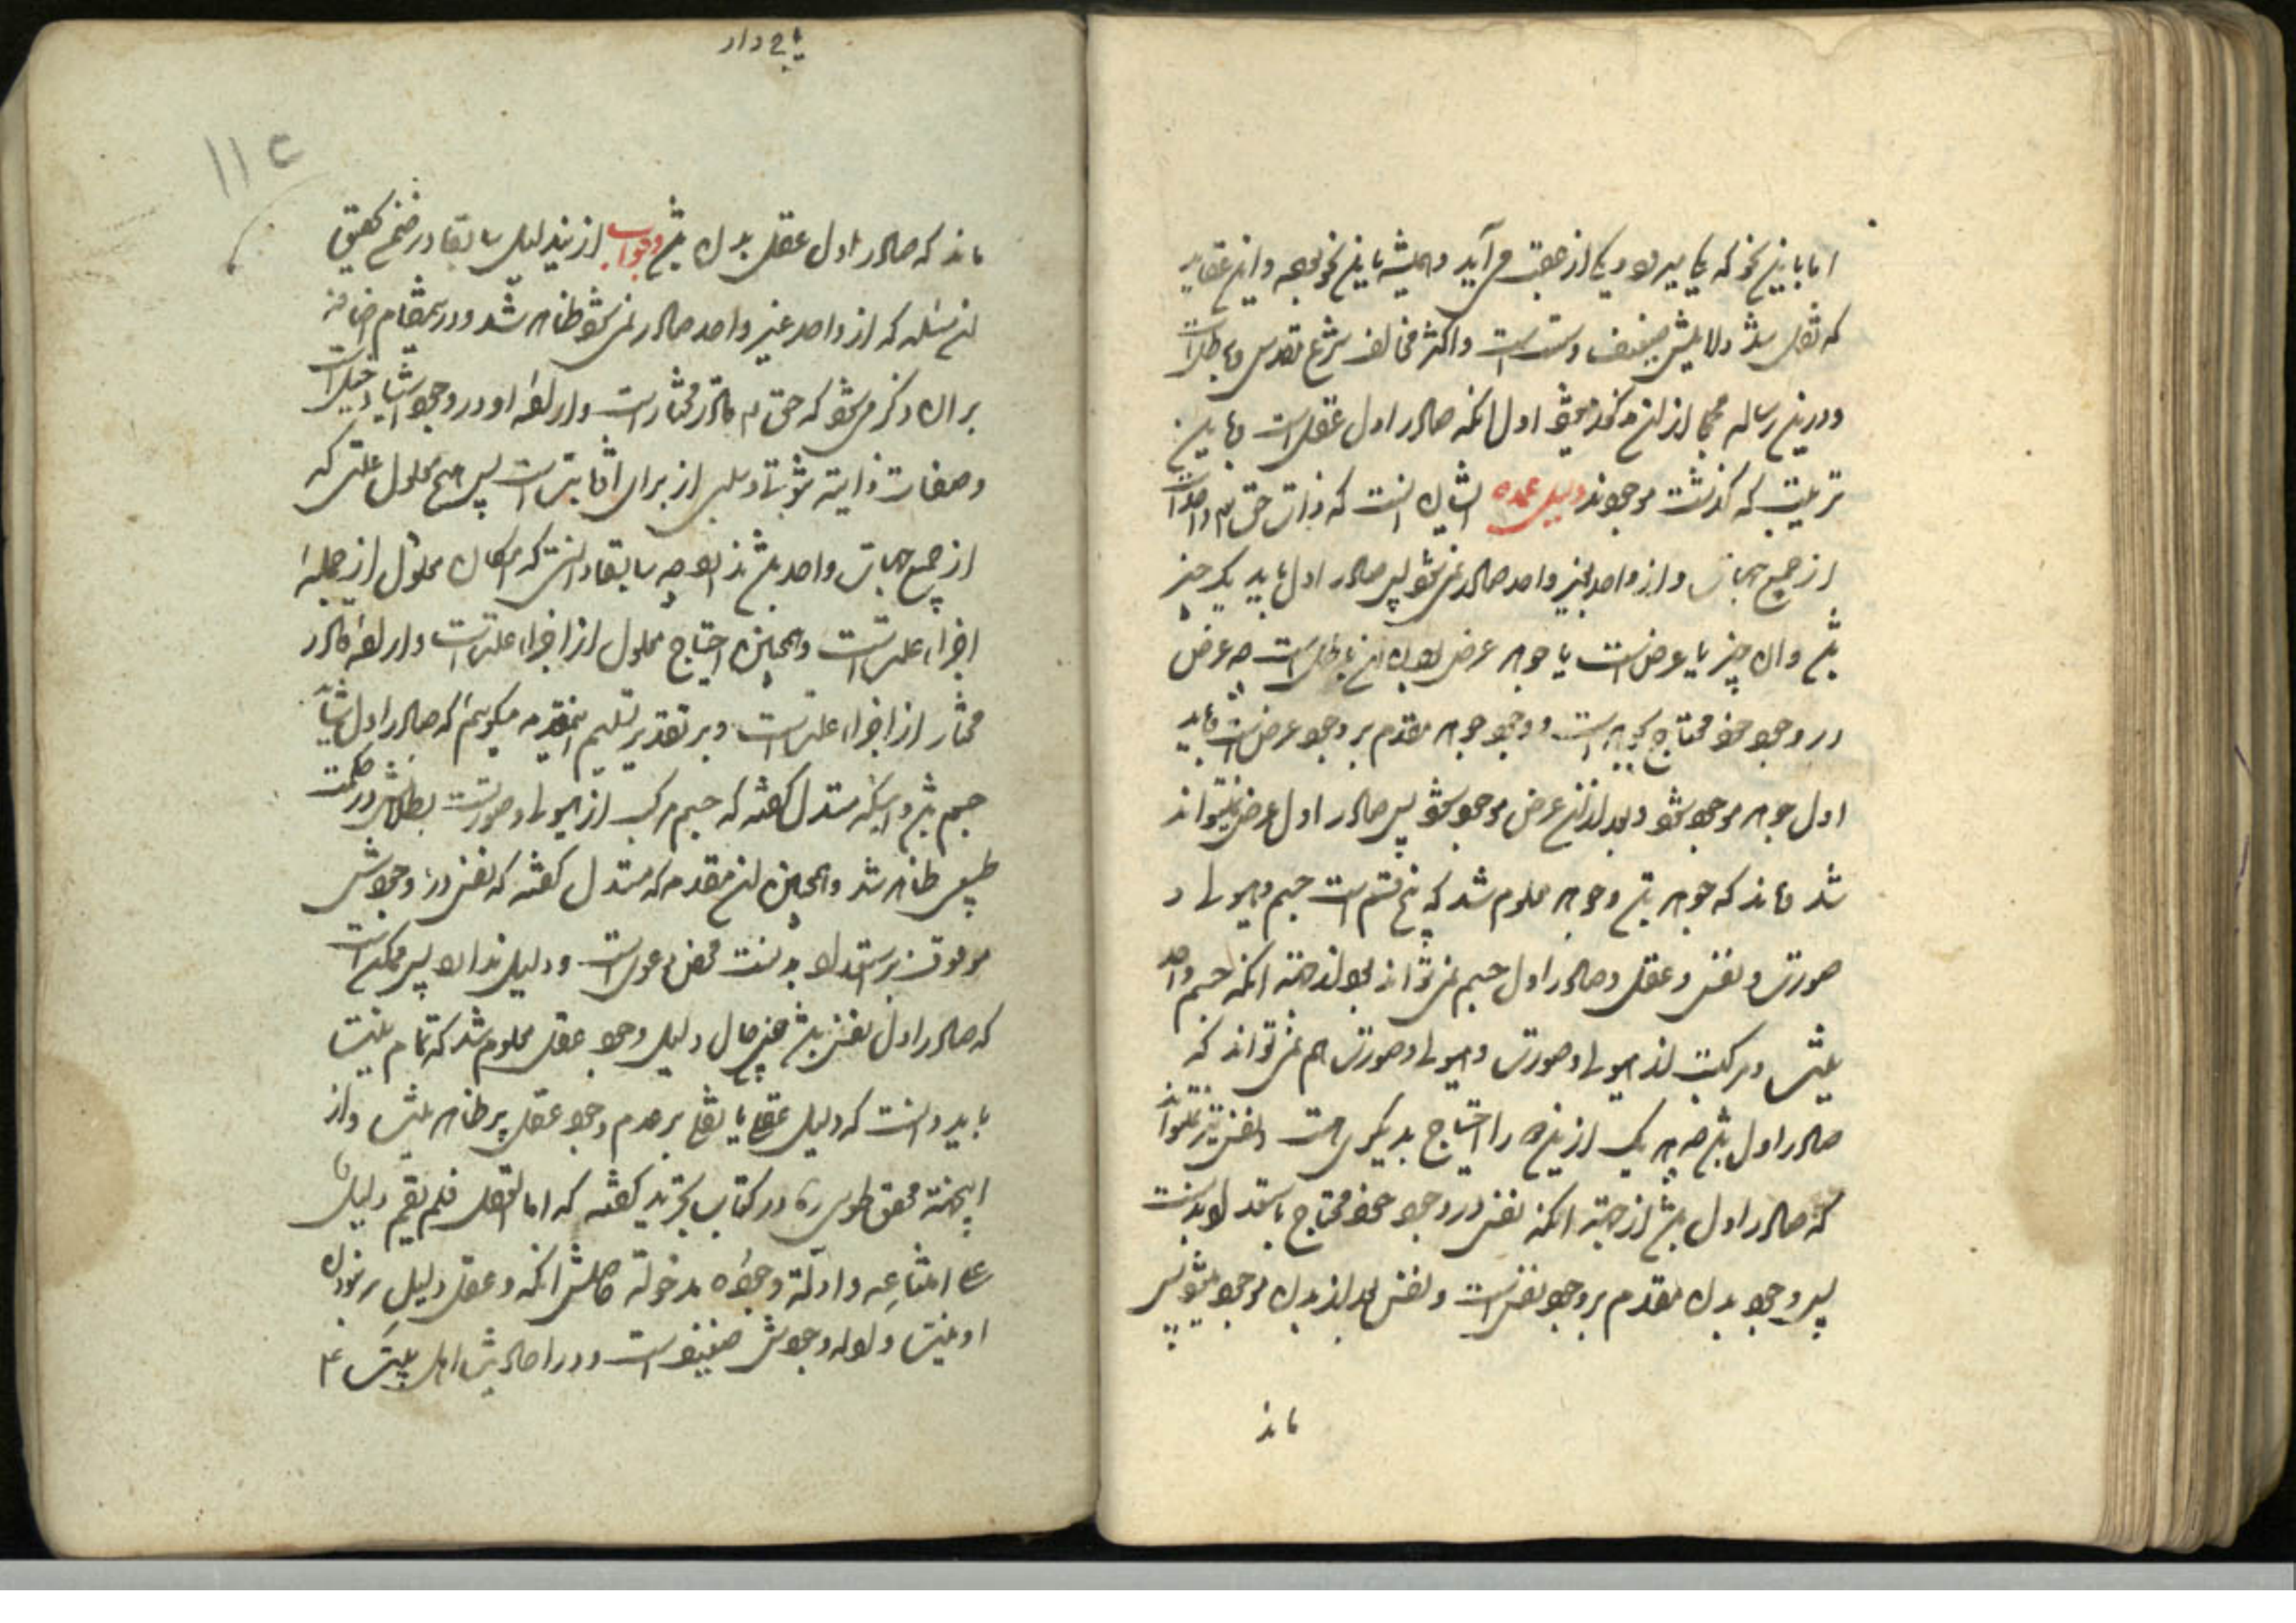 اما باین نحو که یکی میرود و یکی از عقب می آید و همیشه باین نحو بوده و این عقاید
که نقل شد دلایلش ضعیف و سست است و اکثر مخالف شرع مقدس و باطل است
و درین رساله از ان مذکور میشود اول انکه صادر اول عقل است و باین
ترتیب که گذشت موجودند دلیل عمده ایشان انست که ذات حق تع واحد است
از جمیع جهات و از واحد بغیر واحد صادر نمی شود پس صادر اول باید یک چیز
باشد و ان چیز یا عرض است یا جوهر عرض بودن این باطل است چه عرض
در وجود خود محتاج بجوهر است و وجود جوهر مقدم بر وجود عرض است و باید
اول جوهر موجود شود و بعد از ان عرض موجود شود پس صادر اول عرض نمیتواند
شد و ماند که جوهر باشد و جوهر معلوم شد که پنج قسم است جسم و هیولی و
صورت و نفس و عقل و صادر اول جسم نمی تواند بود از جهته انکه جسم واحد
نیست و مرکبست از هیولی و صورت و هیولی و صورت هم نمی تواند که
صادر اول باشد چه هر یک ازینها را احتیاج بدیگری هست و نفس نیز نمیتواند
که صادر اول باشد از جهته انکه نفس در وجود خود محتاج باستعداد بدنست
پس وجود بدن مقدم بر وجود نفس است و نفس بعد از بدن موجود میشود پس
ماند
ماند که صادر اول عقل بدن باشد و جواب ازین دلیل سابقا در ضمن تحقیق
این مسئله که از واحد غیر واحد صادر نمی شود ظاهر شد و درینمقام اضافه
بران ذکر می شود که حق تع قادر مختار است و اراده او در وجود اشیا دخیل است
و صفات ذاتیه ثبوتی و سلبی از برای او ثابت است پس هیچ معلول علتی که
از جمیع جهات واحد باشد ندارد چه سابقا دانستی که امکان معلول از جمله
اجزاء علت است و همچنین احتیاج معلول از اجزاء علت است و اراده قادر
مختار از اجزاء علت است و بر تقدیر تسلیم اینمقدمه میگویم که صادر اول شاید
جسم باشد و اینکه مستدل گفته که جسم مرکب از هیولی و صورتست بطلانش در حکمت
طبیعی ظاهر شد و همچنین این مقدمه که مستدل گفته که نفس در وجودش
موقوف بر استعداد بدنست محض دعوی است و دلیل ندارد پس ممکن است
که صادر اول نفس باشد حال دلیل وجود عقل معلوم شد که تمام نیست
باید دانست که دلیل عقلی یا نقلی بر عدم وجود عقل پر ظاهر نیست و از
اینجهته محقق طوسی ره در کتاب تجرید گفته که اما العقل فلم یقم دلیل
علی امتناعه و ادلة وجوده مدخولة حاصلش انکه و عقل دلیل بر نبودن
او نیست و ادله وجودش ضعیف است و در احادیث اهل بیت ع